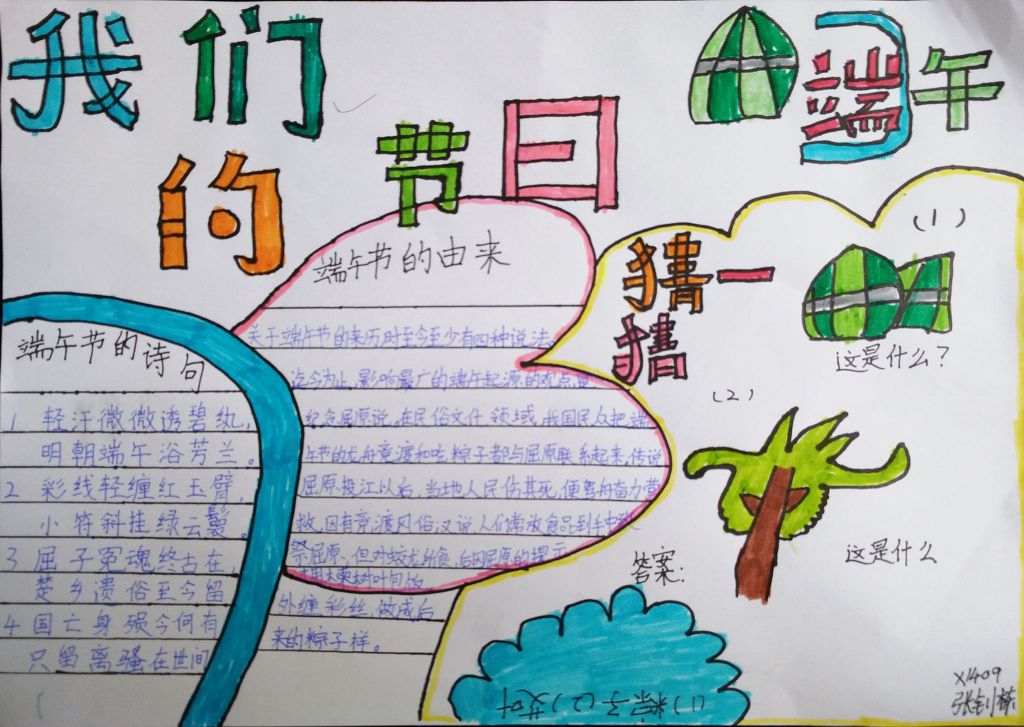 我们的节日
端午
端午节的诗句
1 轻汗微微透碧纨,
明朝端午浴芳兰。
2 彩线轻缠红玉臂,
小符斜挂绿云鬟。
3 屈子冤魂终古在,
楚乡遗俗至今留
4 国亡身殒今何有
只留离骚在世间
端午节的由来
关于端午节的来历时至今至少有四种说法
迄今为止,影响最广的端午起源的观点是
纪念屈原说,在民俗文化领域,我国民众把端
午节的龙舟竞渡和吃粽子都与屈原联系起来,传说
屈原投江以后,当地人民伤其死,便驾舟奋力营
救,因有竞渡风俗,又说人们常放食品到水中致
祭屈原、但为蛟龙所食,后因屈原的提示
才用楝树叶包饭
外缠彩丝,做成后
来的粽子样。
猜一猜
(1)
这是什么?
(2)
这是什么
答案:
(1)粽子(2)艾叶
X1409